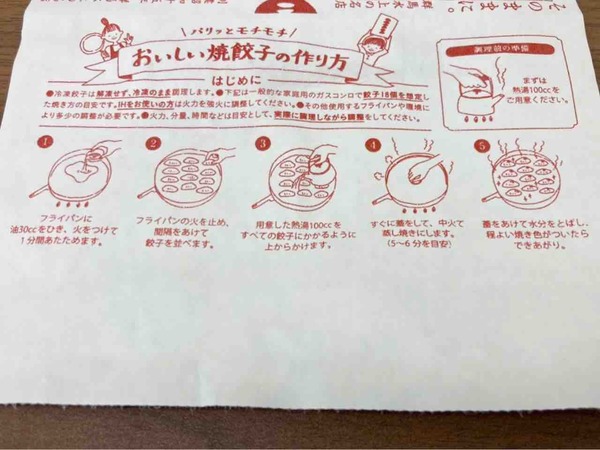 そのままに。
群馬水上の名店
パリッとモチモチ
おいしい焼餃子の作り方
はじめに
●冷凍餃子は解凍せず、冷凍のまま調理します。●下記は一般的な家庭用のガスコンロで餃子18個を想定し
た焼き方の目安です。IHをお使いの方は火力を強火に調整してください。●その他使用するフライパンや環境に
より多少の調整が必要です。●火力、分量、時間などは目安として、実際に調理しながら調整をしてください。
調理前の準備
まずは
熱湯100ccを
ご用意ください。
1
フライパンに
油30ccをひき、火をつけて
1分間あたためます。
2
フライパンの火を止め、
間隔をあけて
餃子を並べます。
3
用意した熱湯100ccを
すべての餃子にかかるように
上からかけます。
4
すぐに蓋をして、中火で
蒸し焼きにします。
(5〜6分を目安)
5
蓋をあけて水分をとばし、
程よい焼き色がついたら
できあがり。